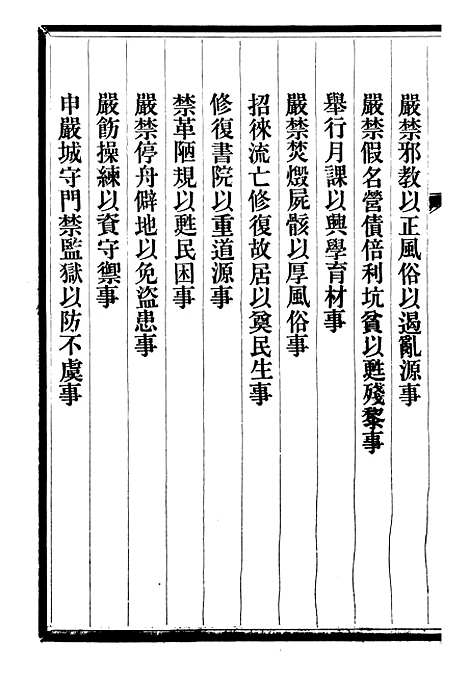 嚴禁邪教以正風俗以遏亂源事
嚴禁假名營債倍利坑貧以甦殘黎事
舉行月課以興學育材事
嚴禁焚燬屍骸以厚風俗事
招徠流亡修復故居以奠民生事
修復書院以重道源事
禁革陋規以甦民困事
嚴禁停舟僻地以免盜患事
嚴飭操練以資守禦事
申嚴城守門禁監獄以防不虞事